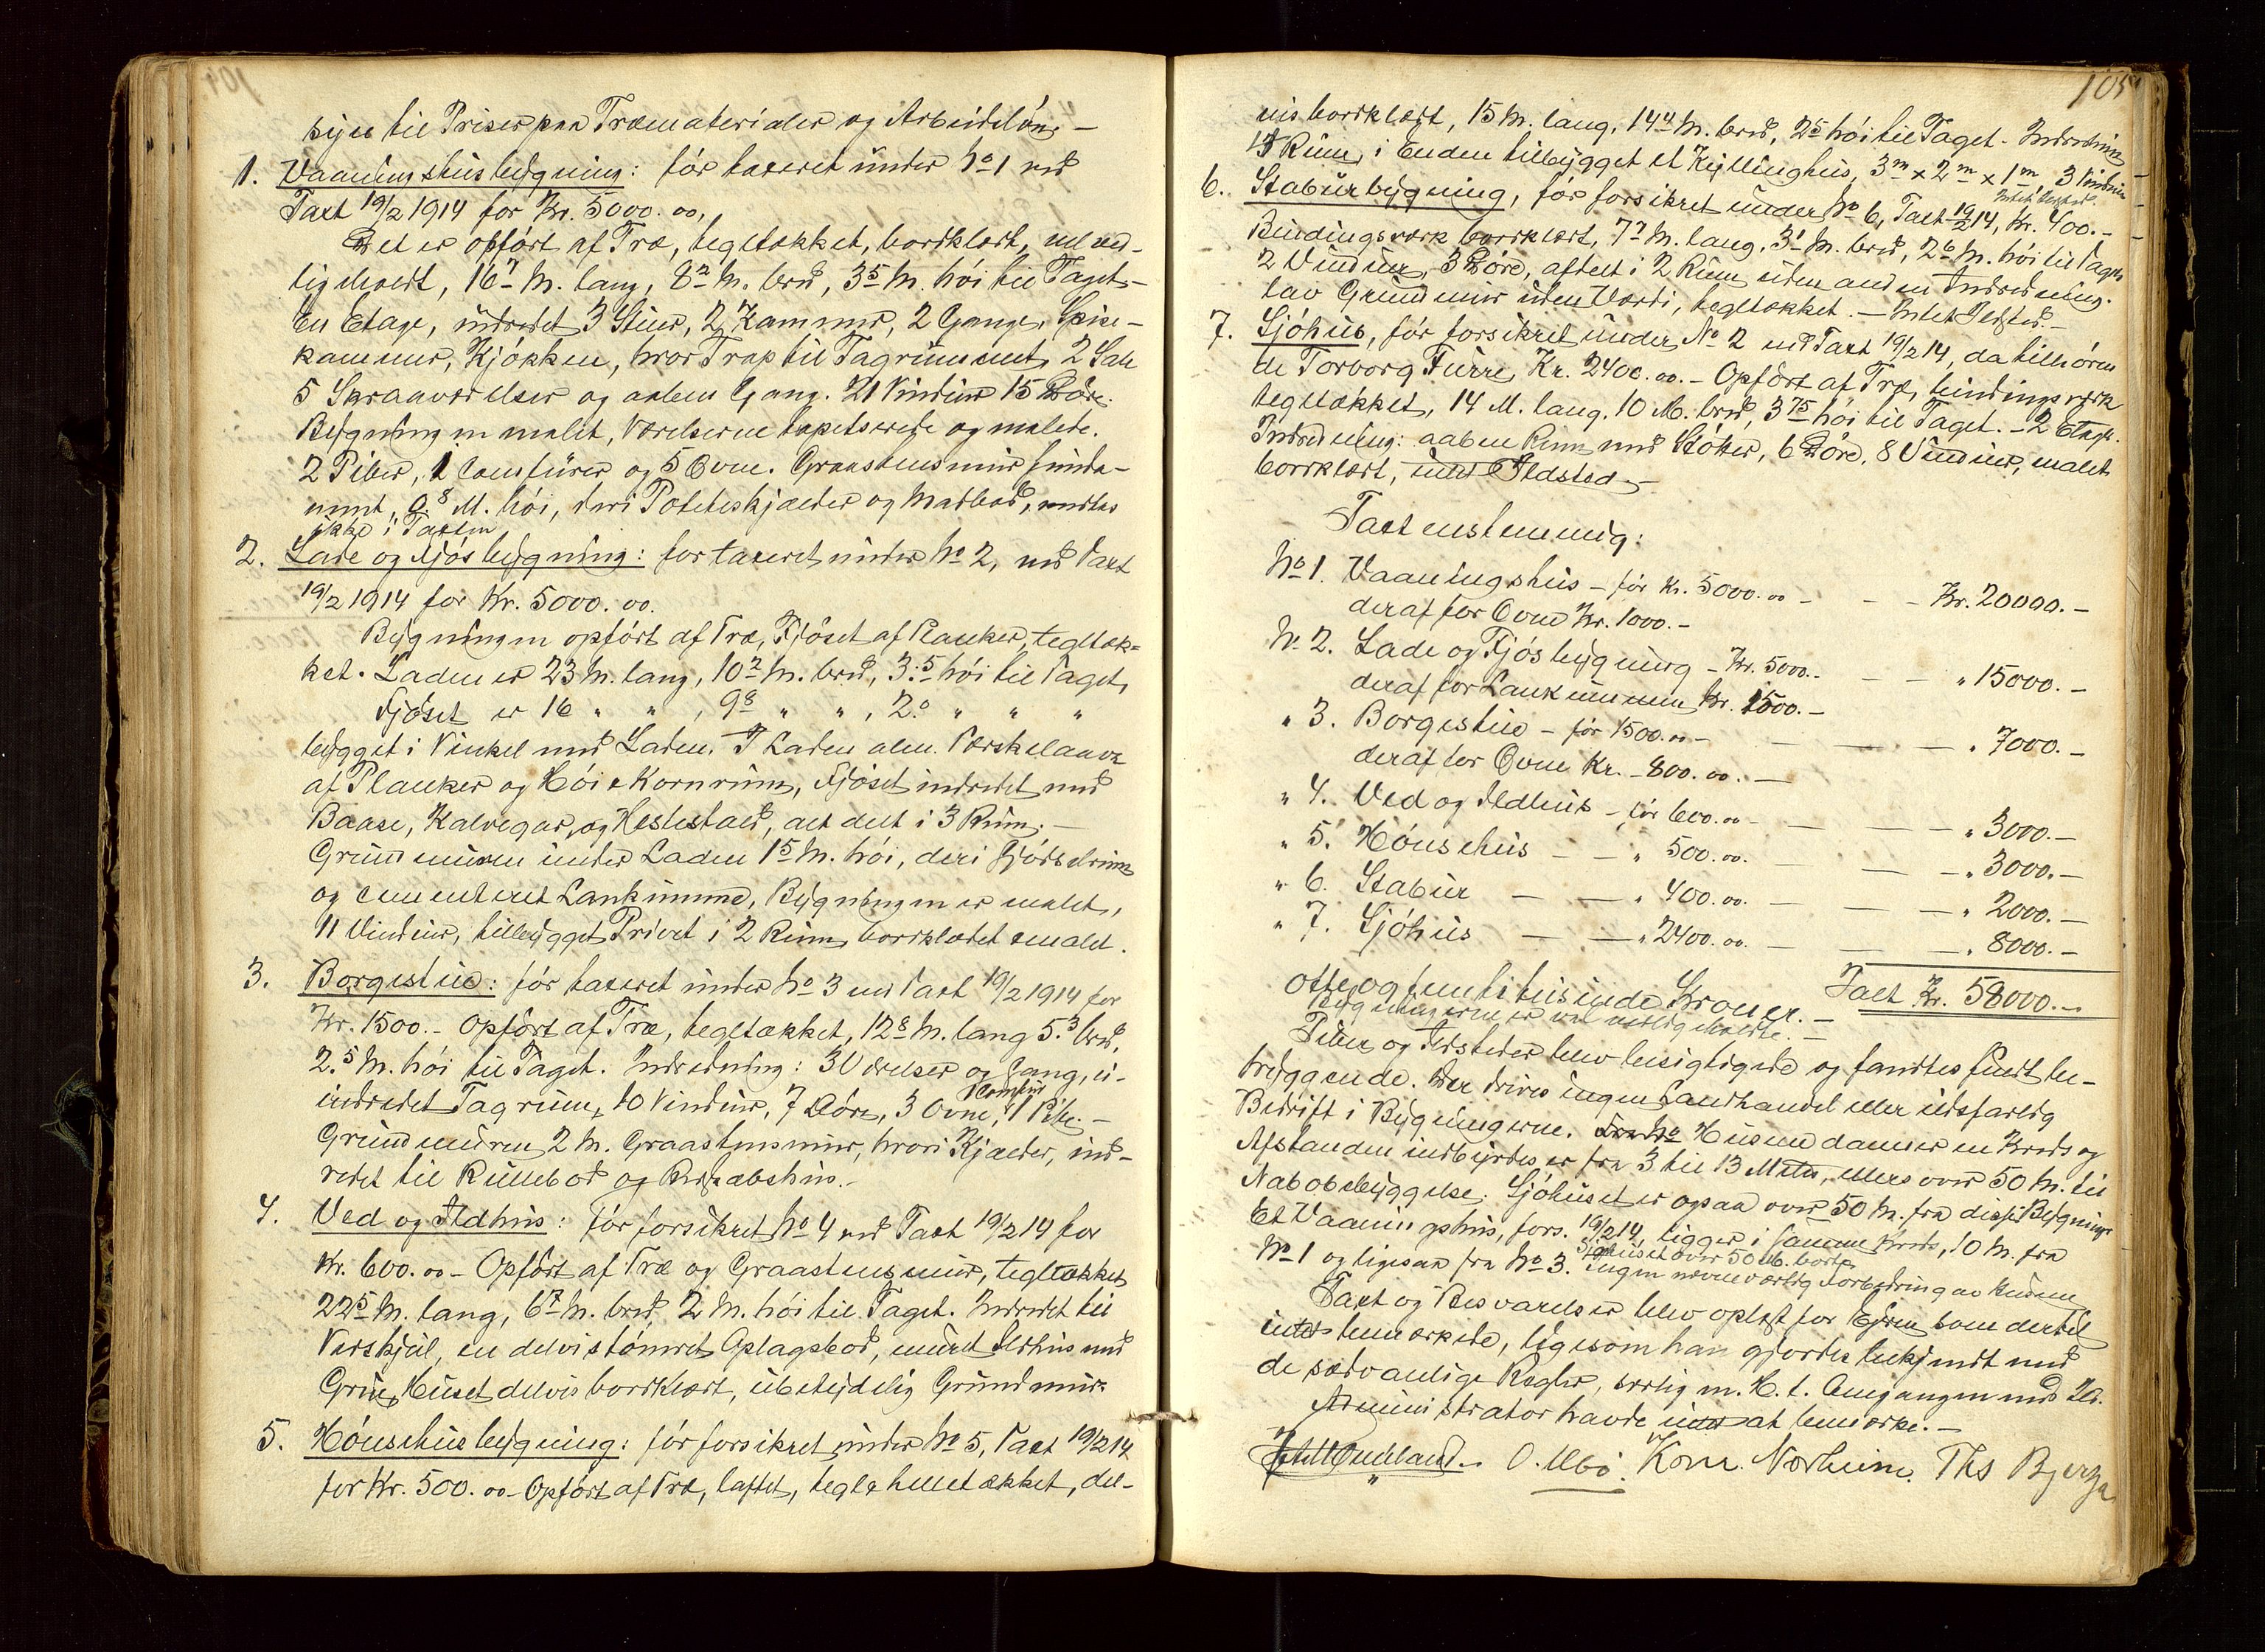 syn til Priser paa Træmaterialer og Arbeidsløn. —
1. Vaaningshusbygning: før taxeret under No 1 ved
Taxt 19/2 1914 for Kr. 5000.00.
Det er opført af Træ, tegltækket, bordklædt, udved-
ligeholdt, 16⁷ M. lang, 8² M. bred, 3⁵ M. høi til Taget. —
En Etage, indredet 3 Stuer, 2 Kammer, 2 Gange, Spise-
kammer, Kjøkken, hvor Trap til Tagrummet, 2 Sale
5 Skraaværelser og aaben Gang. 21 Vinduer 15 Døre.
Bygningen malet, Værelserne tapetserede og malede.
2 Piber, 1 Comfurer og 5 Ovne. Graastensmur funda-
ment, 0.⁸ M. høi, deri Poteteskjælder og Madbod, medtas
ikke i Taxten
2. Lade og Fjøsbygning: før taxeret under No 2, ved Taxt
19/2 1914 for Kr. 5000.00.
Bygningen opført af Træ, Fjøset af Planker, tegltæk-
ket. Laden er 23 M. lang, 10² M. bred, 3.⁵ høi til Taget,
Fjøset er 16 " " , 9⁸ " " , 2.⁰ " " "
bygget i Vinkel med Laden. I Laden alm. Tærskelaave
af Planker og Høi & Kornrum, Fjøset indredet med
Baase, Kalvegar, og Hestestald, alt delt i 3 Rum. —
Grundmuren under Laden 1⁵ M. høi, deri Gjødselrum
og cementeret Lankumme, Bygningen er malet,
11 Vinduer, tilbygget Privet i 2 Rum, bordklædet & malet.
3. Borgestue: før taxeret under No 3 ved Taxt 19/2 1914 for
Kr. 1500.- Opført af Træ, tegltækket, 12⁸ M. lang 5.³ bred,
2.⁵ M. høi til Taget. Indredning: 3 Værelser og Gang, u-
indredet Tagrum, 10 Vinduer, 7 Døre, 3 Ovne, 1 Comfur 1 Pibe. —
Grundmuren 2 M. Graastensmur, hvori Kjælder, ind-
redet til Rullebod og Redskabshus. —
4. Ved og Ildhus: før forsikret No 4 ved Taxt 19/2 14 for
Kr. 600.00 - Opført af Træ og Graastensmur, tegltækket
22⁵ M. lang, 6⁷ M. bred, 2 M. høi til Taget. Indredet til
Vedskjul, en delvis tømret Oplagsbod, muret Ildhus med
Grue, Huset delvis bordklædt, ubetydelig Grundmur.
5. Hønsehusbygning: før forsikret under No 5, Taxt 19/2 14
for Kr. 500.00 - Opført af Træ, laftet, tegl & helletækket, del-
105
vis bordklædt, 15 M. lang, 14⁴ M. bred, 2⁵ høi til Taget. Indredning
Rum, i Enden tilbygget et Kyllinghus, 3ᵐ x 2ᵐ x 1ᵐ 3 Vinduer
Intet Ildsted.
6. Stabursbygning, før forsikret under No 6, Taxt 19/2 14, Kr. 400.-
Bindingsværk bordklædt, 7⁷ M. lang, 3¹ M. bred, 2⁶ M. høi til Taget
2 Vinduer, 3 Døre, afdelt i 2 Rum uden anden Indredning.
lav Grundmur uden Værdi, tegltækket. — Intet Ildsted. —
7. Sjøhus, før forsikret under No 2 ved Taxt 19/2 14, da tilhøren
de Torborg Furre, Kr. 2400.00. - Opført af Træ, bindingsverk
tegltækket, 14 M. lang, 10 M. bred, 3⁷⁵ høi til Taget. - 2 Etager.
Indredning: aaben Rum med Støtter, 6 Døre, 8 Vinduer, malet
bordklædt, intet Ildsted. —
Taxt enstemmig:
No 1. Vaaningshus - før Kr. 5000.00 - - - Kr. 20000.-
deraf for Ovne Kr. 1000.-
No 2. Lade og Fjøsbygning - Kr. 5000.- - - " 15000.-
deraf for Lankummen Kr. 1500.-
" 3. Borgestue - før 1500.00 - - - - " 7000.-
deraf for Ovne Kr. - 800.00. -
" 4. Ved og Ildhus - før 600.00 - - - - " 3000.-
" 5. Hønsehus - - " 500.00. - - " 3000.-
" 6. Stabur - - " 400.00. - - - " 2000.-
" 7. Sjøhus - - " 2400.00. - - - " 8000.-
Taxt Kr. 58000.-
Otte og femti tusinde Kroner. -
Bygningerne er vel vedligeholdte. -
Piber og Ildsteder blev besigtigede og fandtes fuldt be-
tryggende. Der drives ingen Landhandel eller ildsfarlig
Bedrift i Bygningerne. Husene danner en Kreds og
Afstanden indbyrdes er fra 3 til 13 Meter, ellers over 50 M. til
Nabobebyggelse. Sjøhuset er ogsaa over 50 M. fra disse Bygninger
Et Vaaningshus, fors. 19/2 14, ligger i samme Kreds, 10 M. fra
No 1 og ligesaa fra No 3. Sjøhuset over 50 M. borte
Ingen nævneværdig Forbedring av Husene
Taxt og Besvarelser blev oplæst for Eieren som dertil
intet bemærkede, ligesom han gjordes bekjendt med
de sædvanlige Regler, særlig m. H. t. Omgangen med Ild.
Administrator havde intet at bemærke. —
O. Utbø. Konr. Nærheim. Ths Bjerga